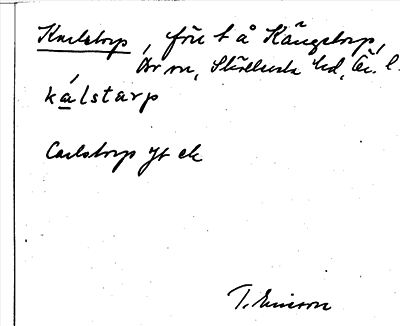 Karlstorp, förr t å Kängstorp,
Hr sn, Skällvik hd, Ög. l.
kálstarp
Carlstorp yt ek
T. Ericsson